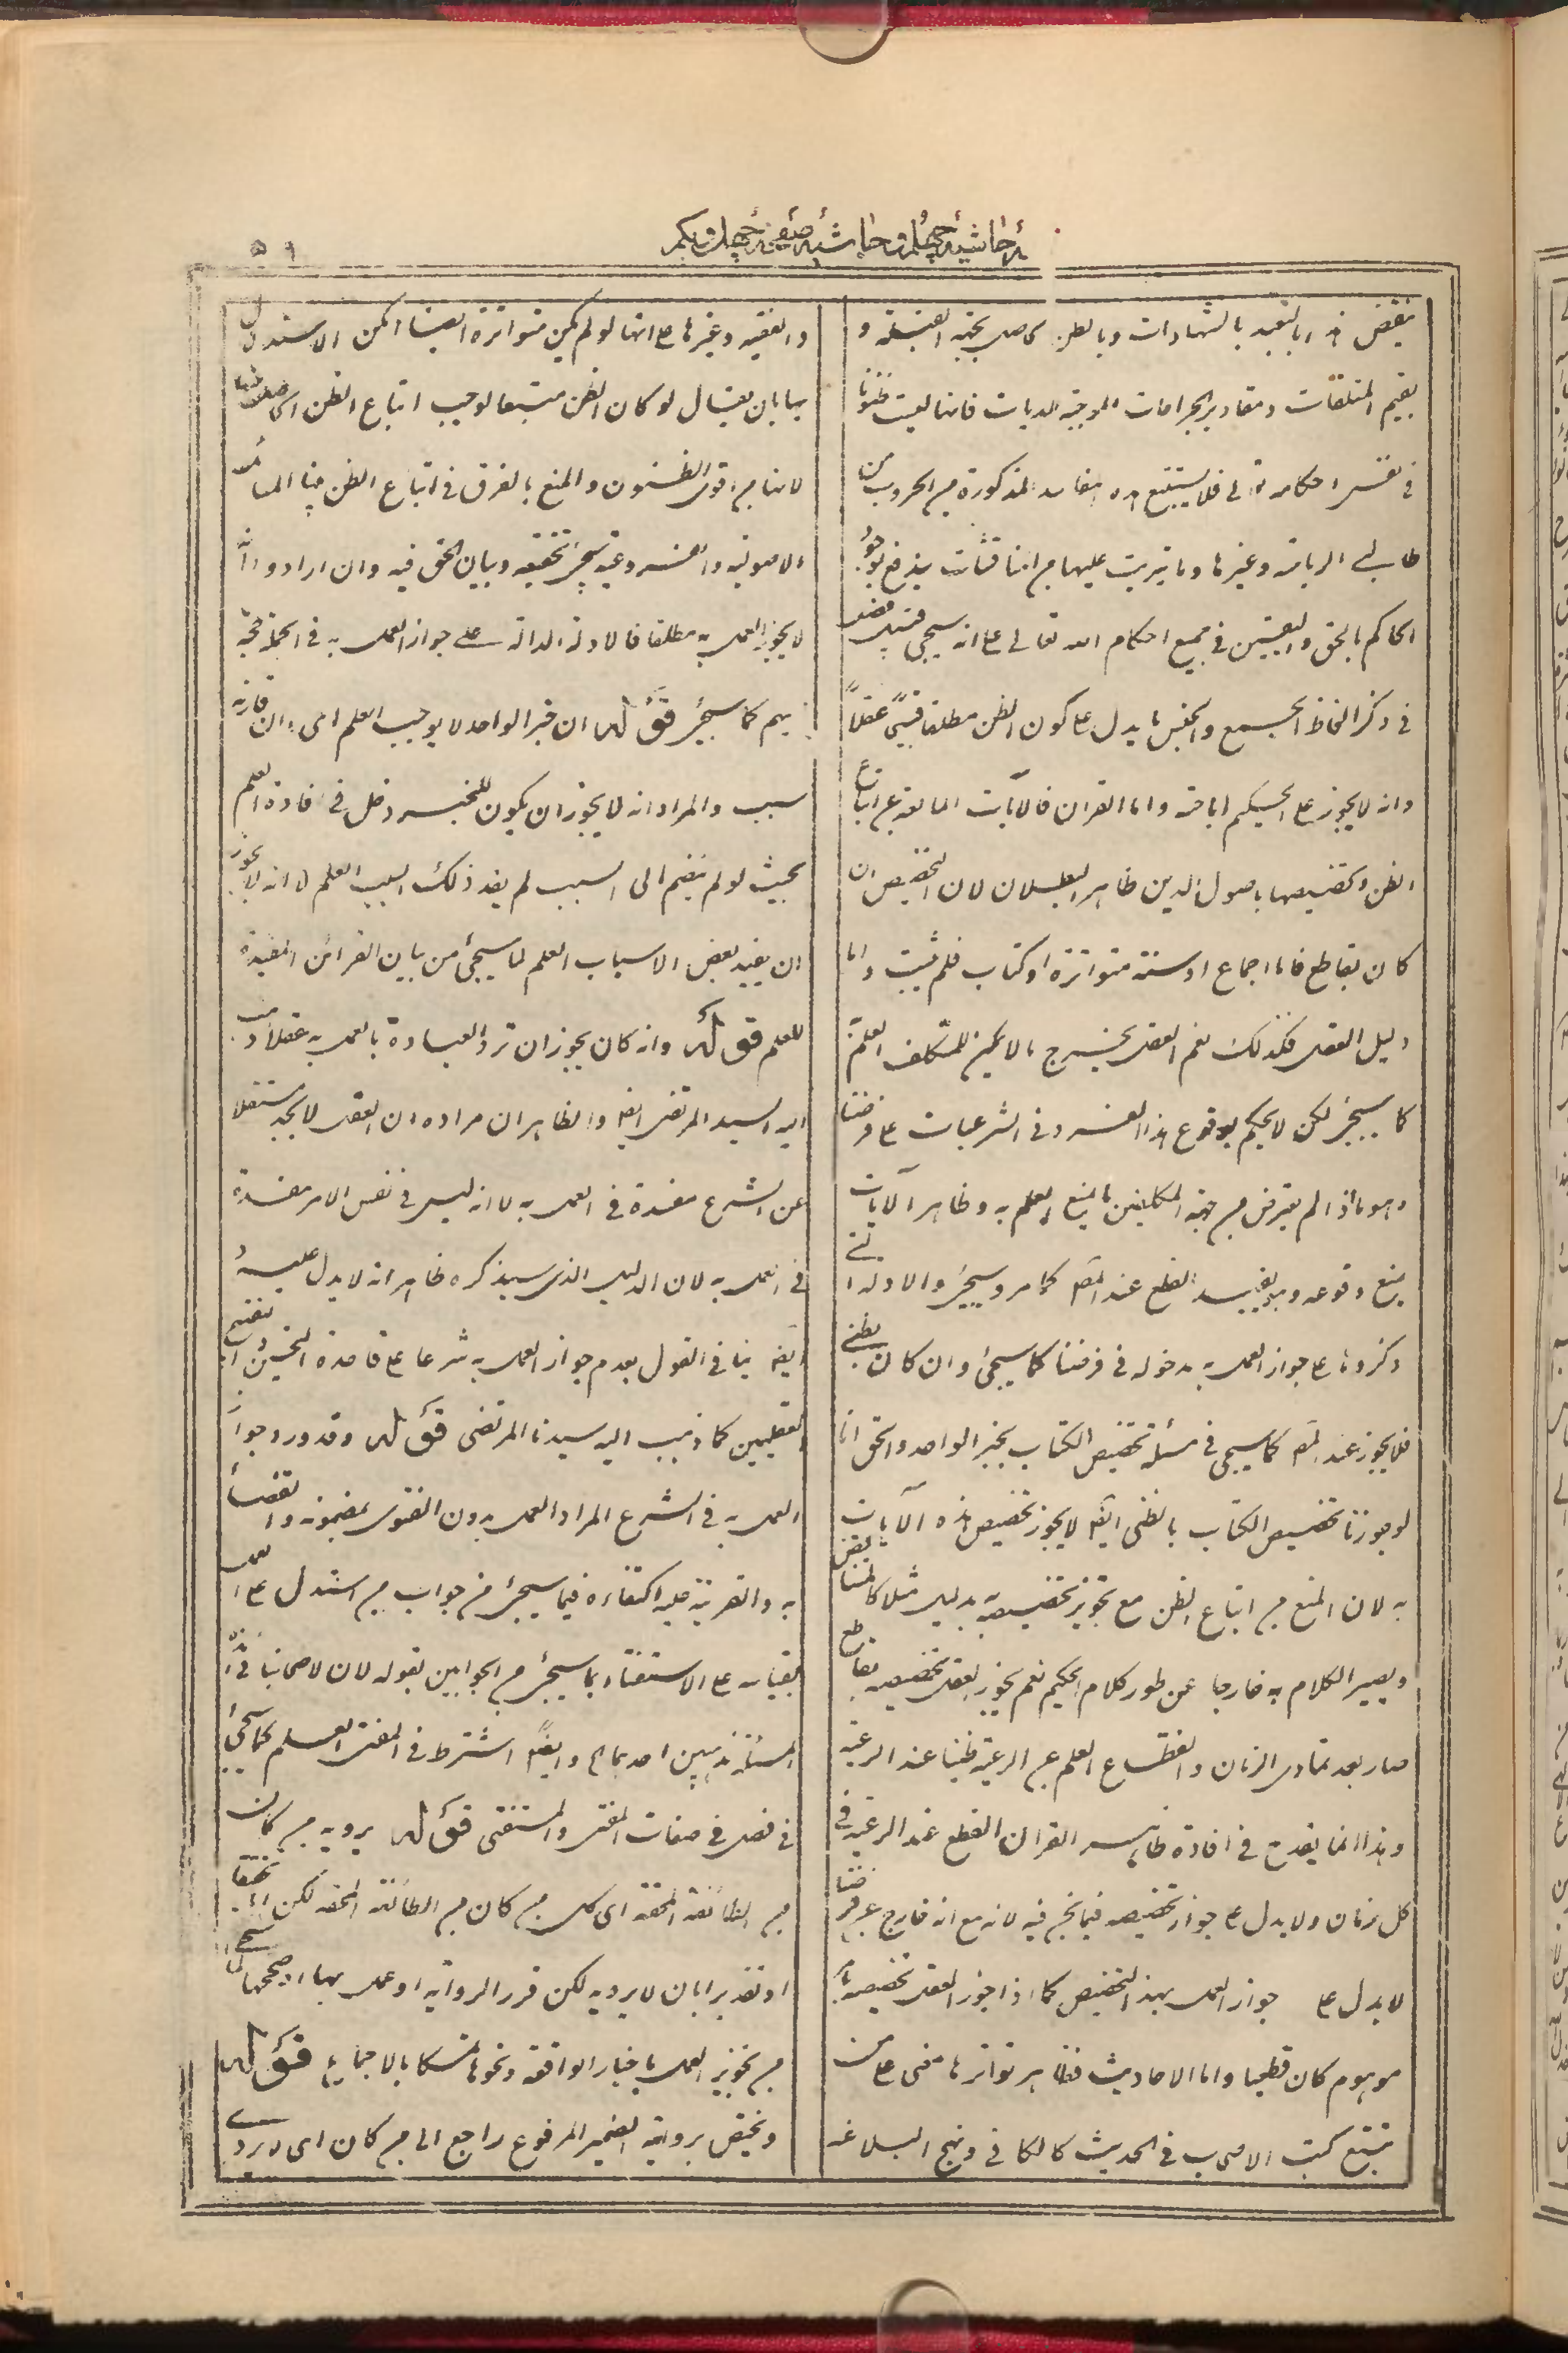 حاشیه چهلم و حاشیه صفحه چهل و یکم
۵۹
ینقض هذا بالتعبد بالشهادات وبالظن الحاصل بجهة القبلة و
بقیم المتلفات ومقادیر الجراحات الموجبة للدیات فانها لیست ظنونا
فی نفس احکامه تعالی فلا یستتبع هذه المفاسد المذکورة من الحروب من
طالبی الریاسة وغیرها وما یترتب علیها من المناقشات یندفع بوجود
الحاکم بالحق والیقین فی جمیع احکام الله تعالی علی انه سیجئ
فی ذکر الفاظ الجمیع والجنس ما یدل علی کون الظن مطلقا قبیحا عقلاً
وانه لا یجوز علی الحکیم اباحته واما القران فالآیات المانعة عن اتباع
الظن وتخصیصها باصول الدین ظاهر البطلان لان التخصیص ان
کان بقاطع فاما اجماع او سنة متواترة او کتاب فلم یثبت واما
دلیل العقل فکذلک نعم العقل یخرج ما لا یمکن للمکلف العلم
کما سیجئ لکن لا یحکم بوقوع هذا الفرد فی الشرعیات علی فرضنا
وهو ما اذا لم یعرض من جهة المکلفین مانع للعلم به وظاهر الآیات
یمنع وقوعه وهو یفید القطع عند المصّ کما مر وسیجئ والادلة التی
ذکروها علی جواز العمل به مدخولة فی فرضنا کما سیجئ وان کان بظنی
فلا یجوز عند المصّ کما سیجئ فی مسئلة تخصیص الکتاب بخبر الواحد والحق انا
لو جوزنا تخصیص الکتاب بالظنی ایضا لا یجوز تخصیص هذه الآیات
به لان المنع من اتباع الظن مع تجویز تخصیصه بدلیل مثله کالمتناقض
ویصیر الکلام به خارجا عن طور کلام الحکیم نعم یجوز العقل تخصیصه بقاطع
صار بعد تمادی الزمان وانقطاع العلم عن الرعیة ظنیا عند الرعیة
وهذا انما یقدح فی افادة ظاهر القران القطع عند الرعیة فی
کل زمان ولا یدل علی جواز تخصیصه فیما نحن فیه لانه مع انه خارج عن فرضنا
لا یدل علی جواز العمل بهذا التخصیص کما اذا جوز العقل تخصیصه بامر
موهوم کان قطعیا واما الاحادیث فظاهر تواترها معنی علی من
تتبع کتب الاصحاب فی الحدیث کالکافی ونهج البلاغة
والفقیه وغیرها علی انها لو لم یکن متواترة ایضا امکن الاستدلال
بها بان یقال لو کان الظن متبعا لوجب اتباع الظن الحاصل منها
لانها من اقوی الظنون والمنع بالفرق فی اتباع الظن بین المسائل
الاصولیة والفروعیة سیجئ تحقیقه وبیان الحق فیه وان ارادوا انّه
لا یجوز العمل به مطلقا فالادلة الدالة علی جواز العمل به فی الجملة حجة
علیهم کما سیجئ قوله ان خبر الواحد لا یوجب العلم ای وان قارنه
سبب والمراد انه لا یجوز ان یکون للخبر دخل فی افادة العلم
بحیث لو لم ینضم الی السبب لم یفد ذلک السبب العلم لا انه لا یجوز
ان یفید بعض الاسباب العلم لما سیجئ من بیان القرائن المفیدة
للعلم قوله وانه کان یجوز ان ترد العبادة بالعمل به عقلا ذهب
الیه السید المرتضی ایضا والظاهر ان مراده ان العقل لا یجد مستقلا
عن الشرع مفسدة فی العمل به لا انه لیس فی نفس الامر مفسدة
فی العمل به لان الدلیل الذی سیذکره ظاهر انه لا یدل علیه
ایضا ینافی القول بعدم جواز العمل به شرعا علی قاعدة التحسین والتقبیح
العقلیین کما ذهب الیه سیدنا المرتضی قوله وقد ورد جواز
العمل به فی الشرع المراد العمل بدون الفتوی بمضمونه والقضاء
به والقرینة علیه اکتفاءه فیما سیجئ من جواب من استدل علی العمل
بقیاسه علی الاستفتاء بما سیجئ من الجوابین بقوله لان لاصحابنا فی هذه
المسئلة مذهبین احدهما الخ وایضاً اشترط فی المفتی العلم کما سیجئ
فی فصل فی صفات المفتی والمستفتی قوله یرویه من کان
من الطائفة المحقة ای کل من کان من الطائفة المحقة لکن اما تحقیقا
او تقدیرا بان لا یرویه لکن قرر الروایة او عمل بها او صححها لما سیجئ
من تجویز العمل باخبار الواقفة ونحوها متمسکا بالاجماع قوله
ویختص بروایته الضمیر المرفوع راجع الی من کان ای لا یروی